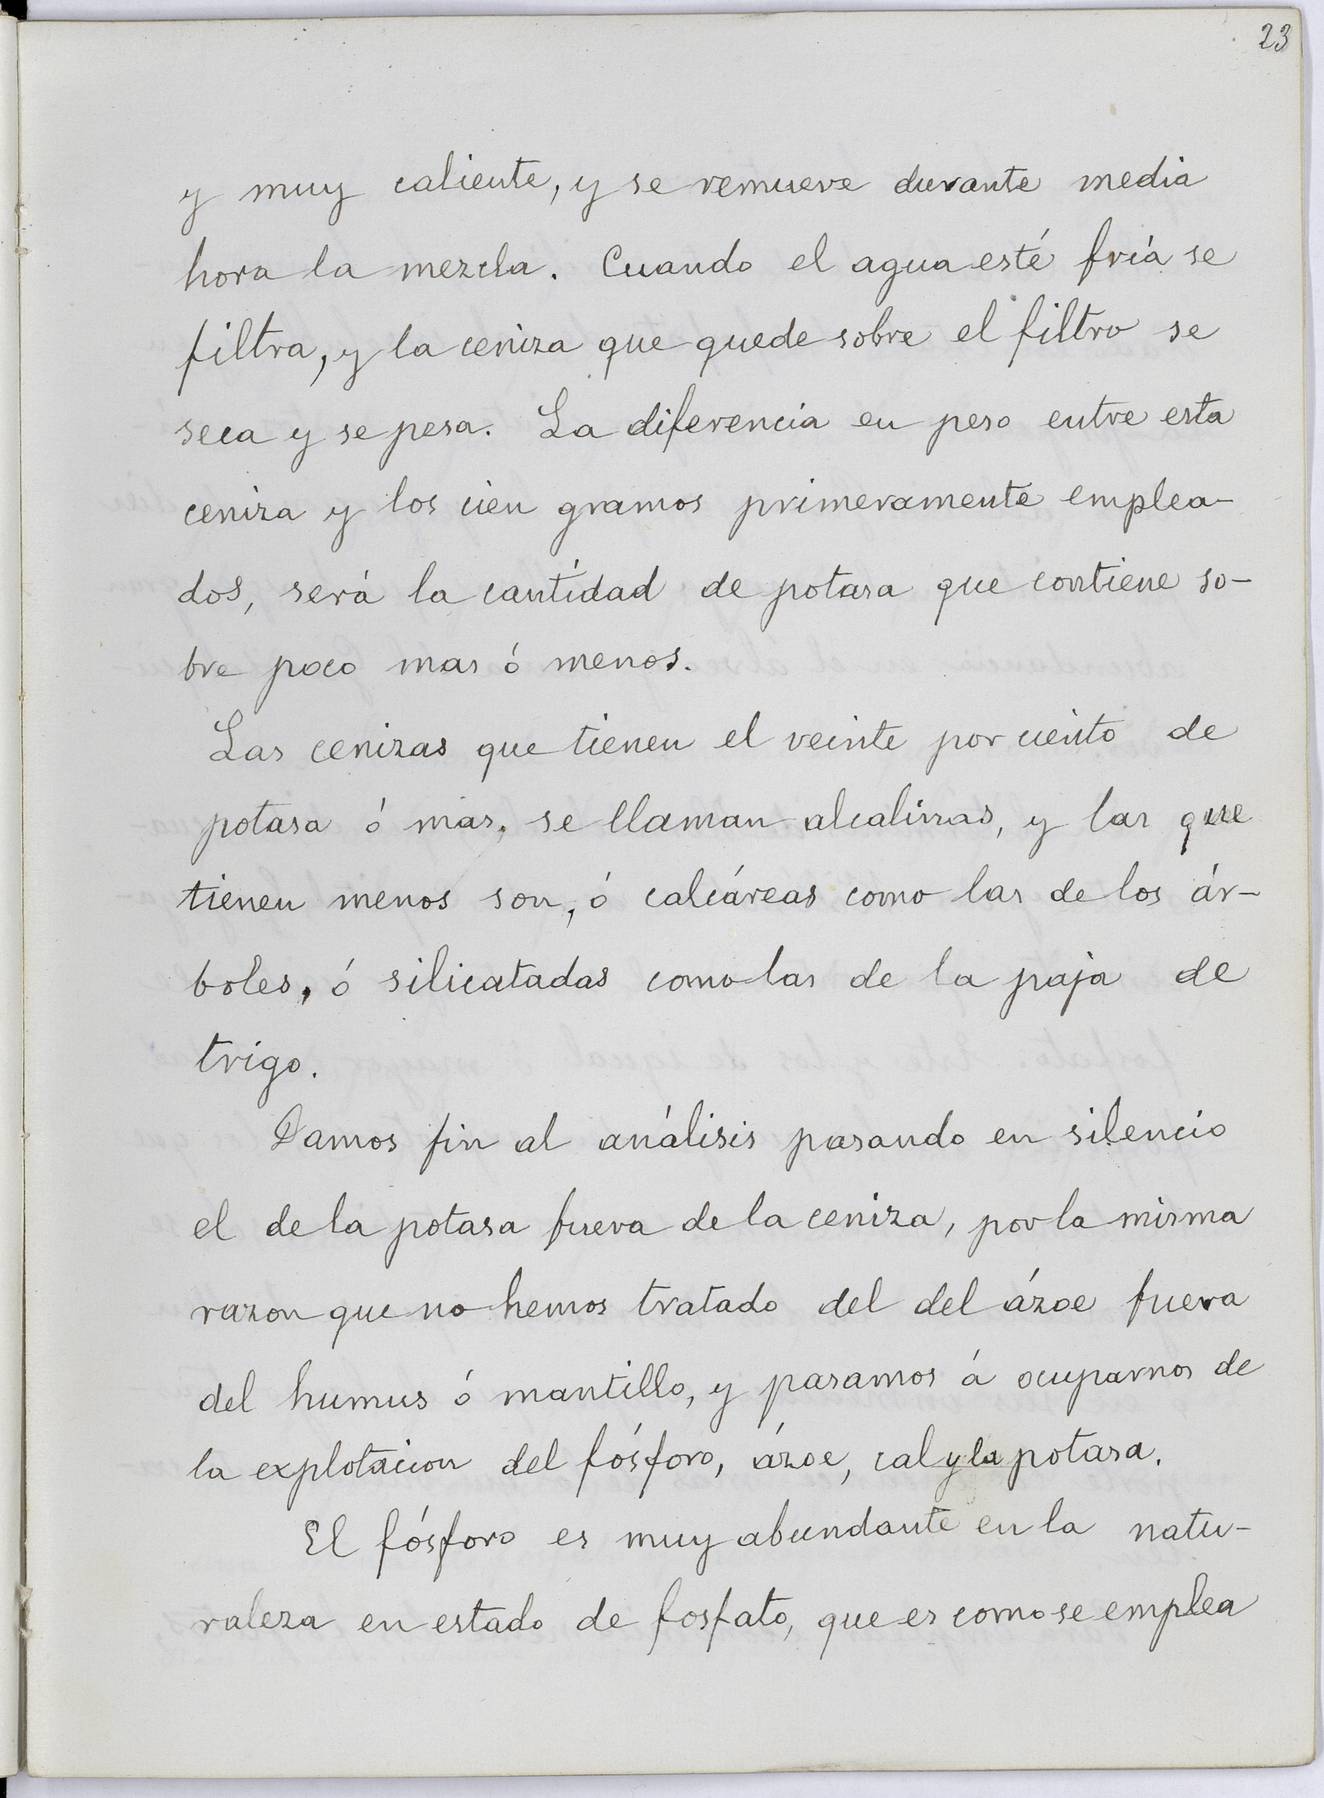 23
y muy caliente, y se remueve durante media
hora la mezcla. Cuando el agua esté fría se
filtra, y la ceniza que quede sobre el filtro se
seca y se pesa. La diferencia en peso entre esta
ceniza y los cien gramos primeramente emplea-
dos, será la cantidad de potasa que contiene so-
bre poco mas ó menos.
Las cenizas que tienen el veinte por ciento de
potasa ó mas, se llaman alcalinas, y las que
tienen menos son, ó calcáreas como las de los ár-
boles, ó silicatadas como las de la paja de
trigo.
Damos fin al análisis pasando en silencio
el de la potasa fuera de la ceniza, por la misma
razon que no hemos tratado del del ázoe fuera
del humus ó mantillo, y pasamos á ocuparnos de
la explotacion del fósforo, ázoe, cal y la potasa.
El fósforo es muy abundante en la natu-
raleza en estado de fosfato, que es como se emplea